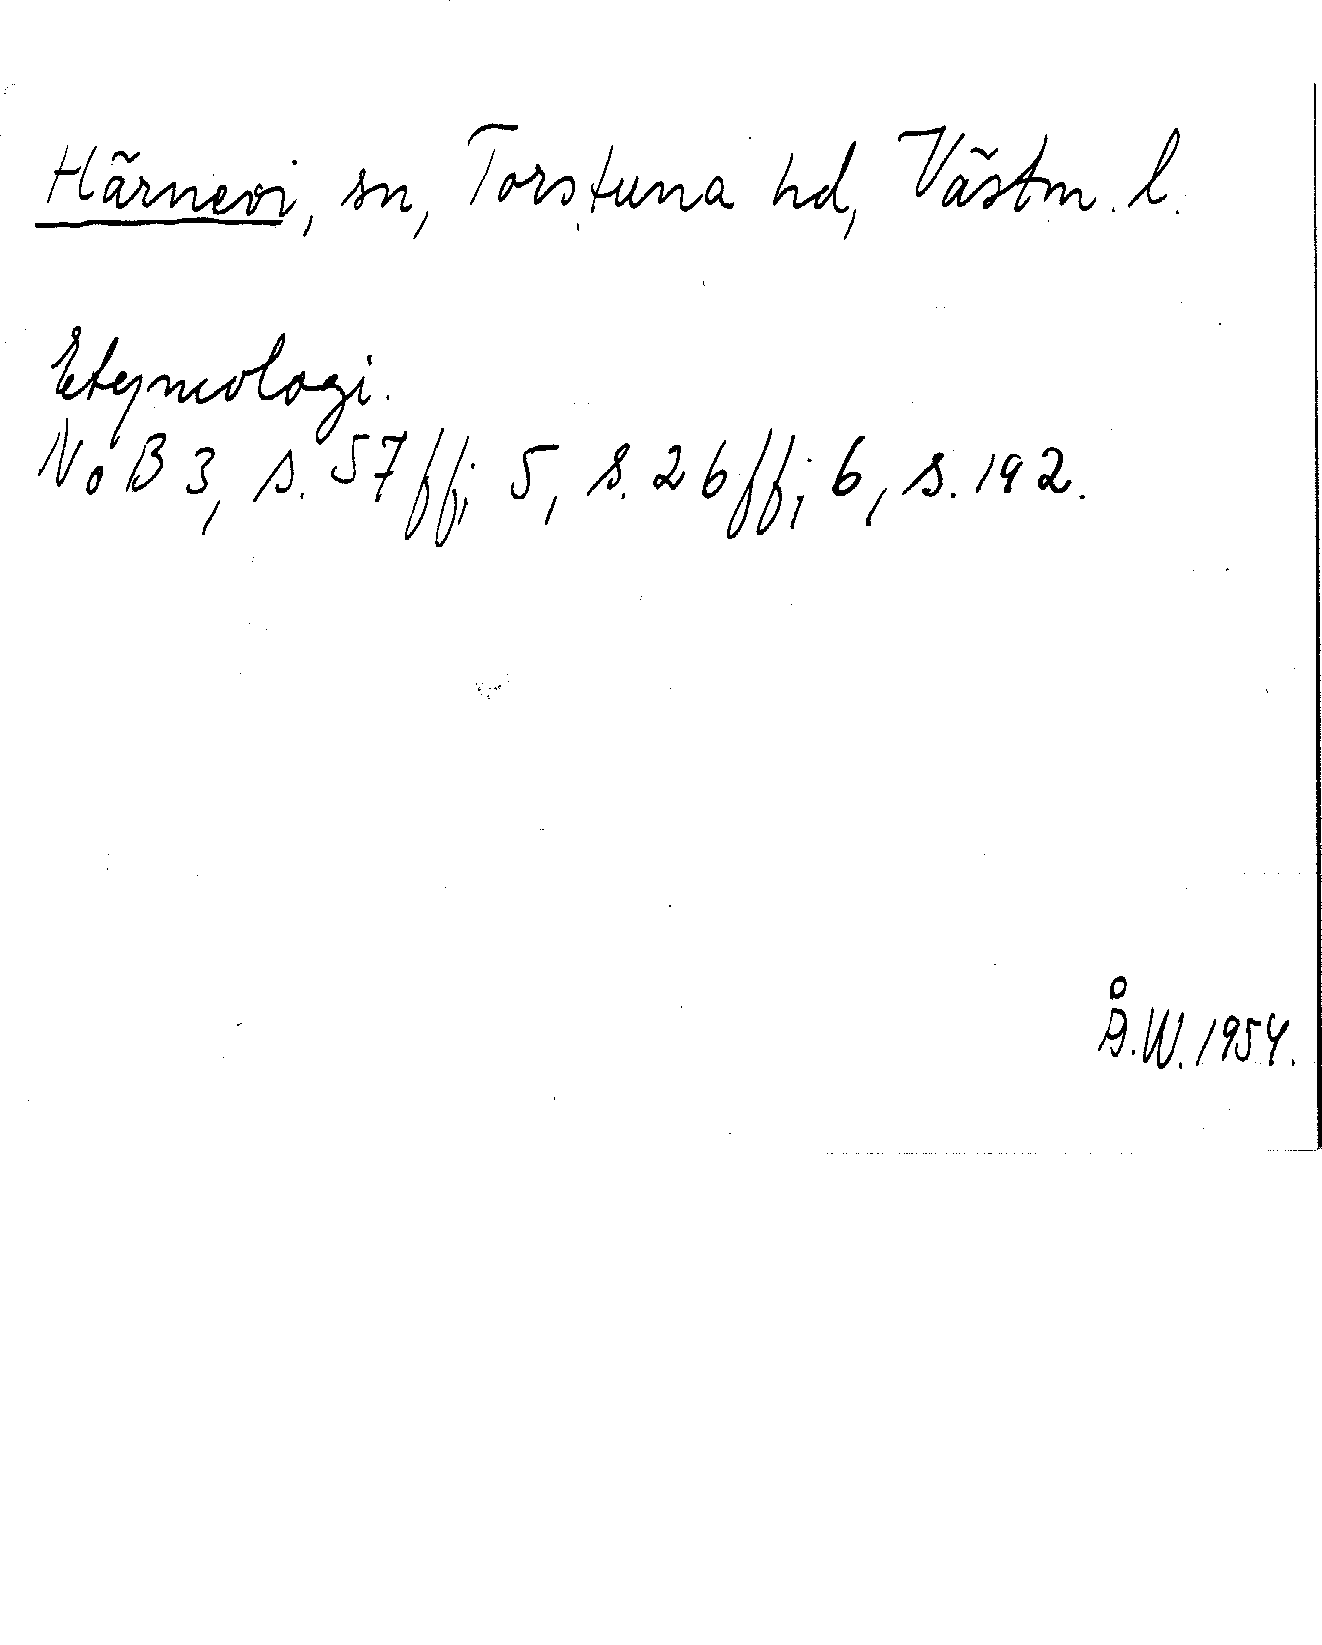 Härnevi, sn, Torstuna hd, Västm. l.
Etymologi.
NoB 3, s. 57 ff; 5, s. 26 ff; 6, s. 192.
Å.W. 1954.